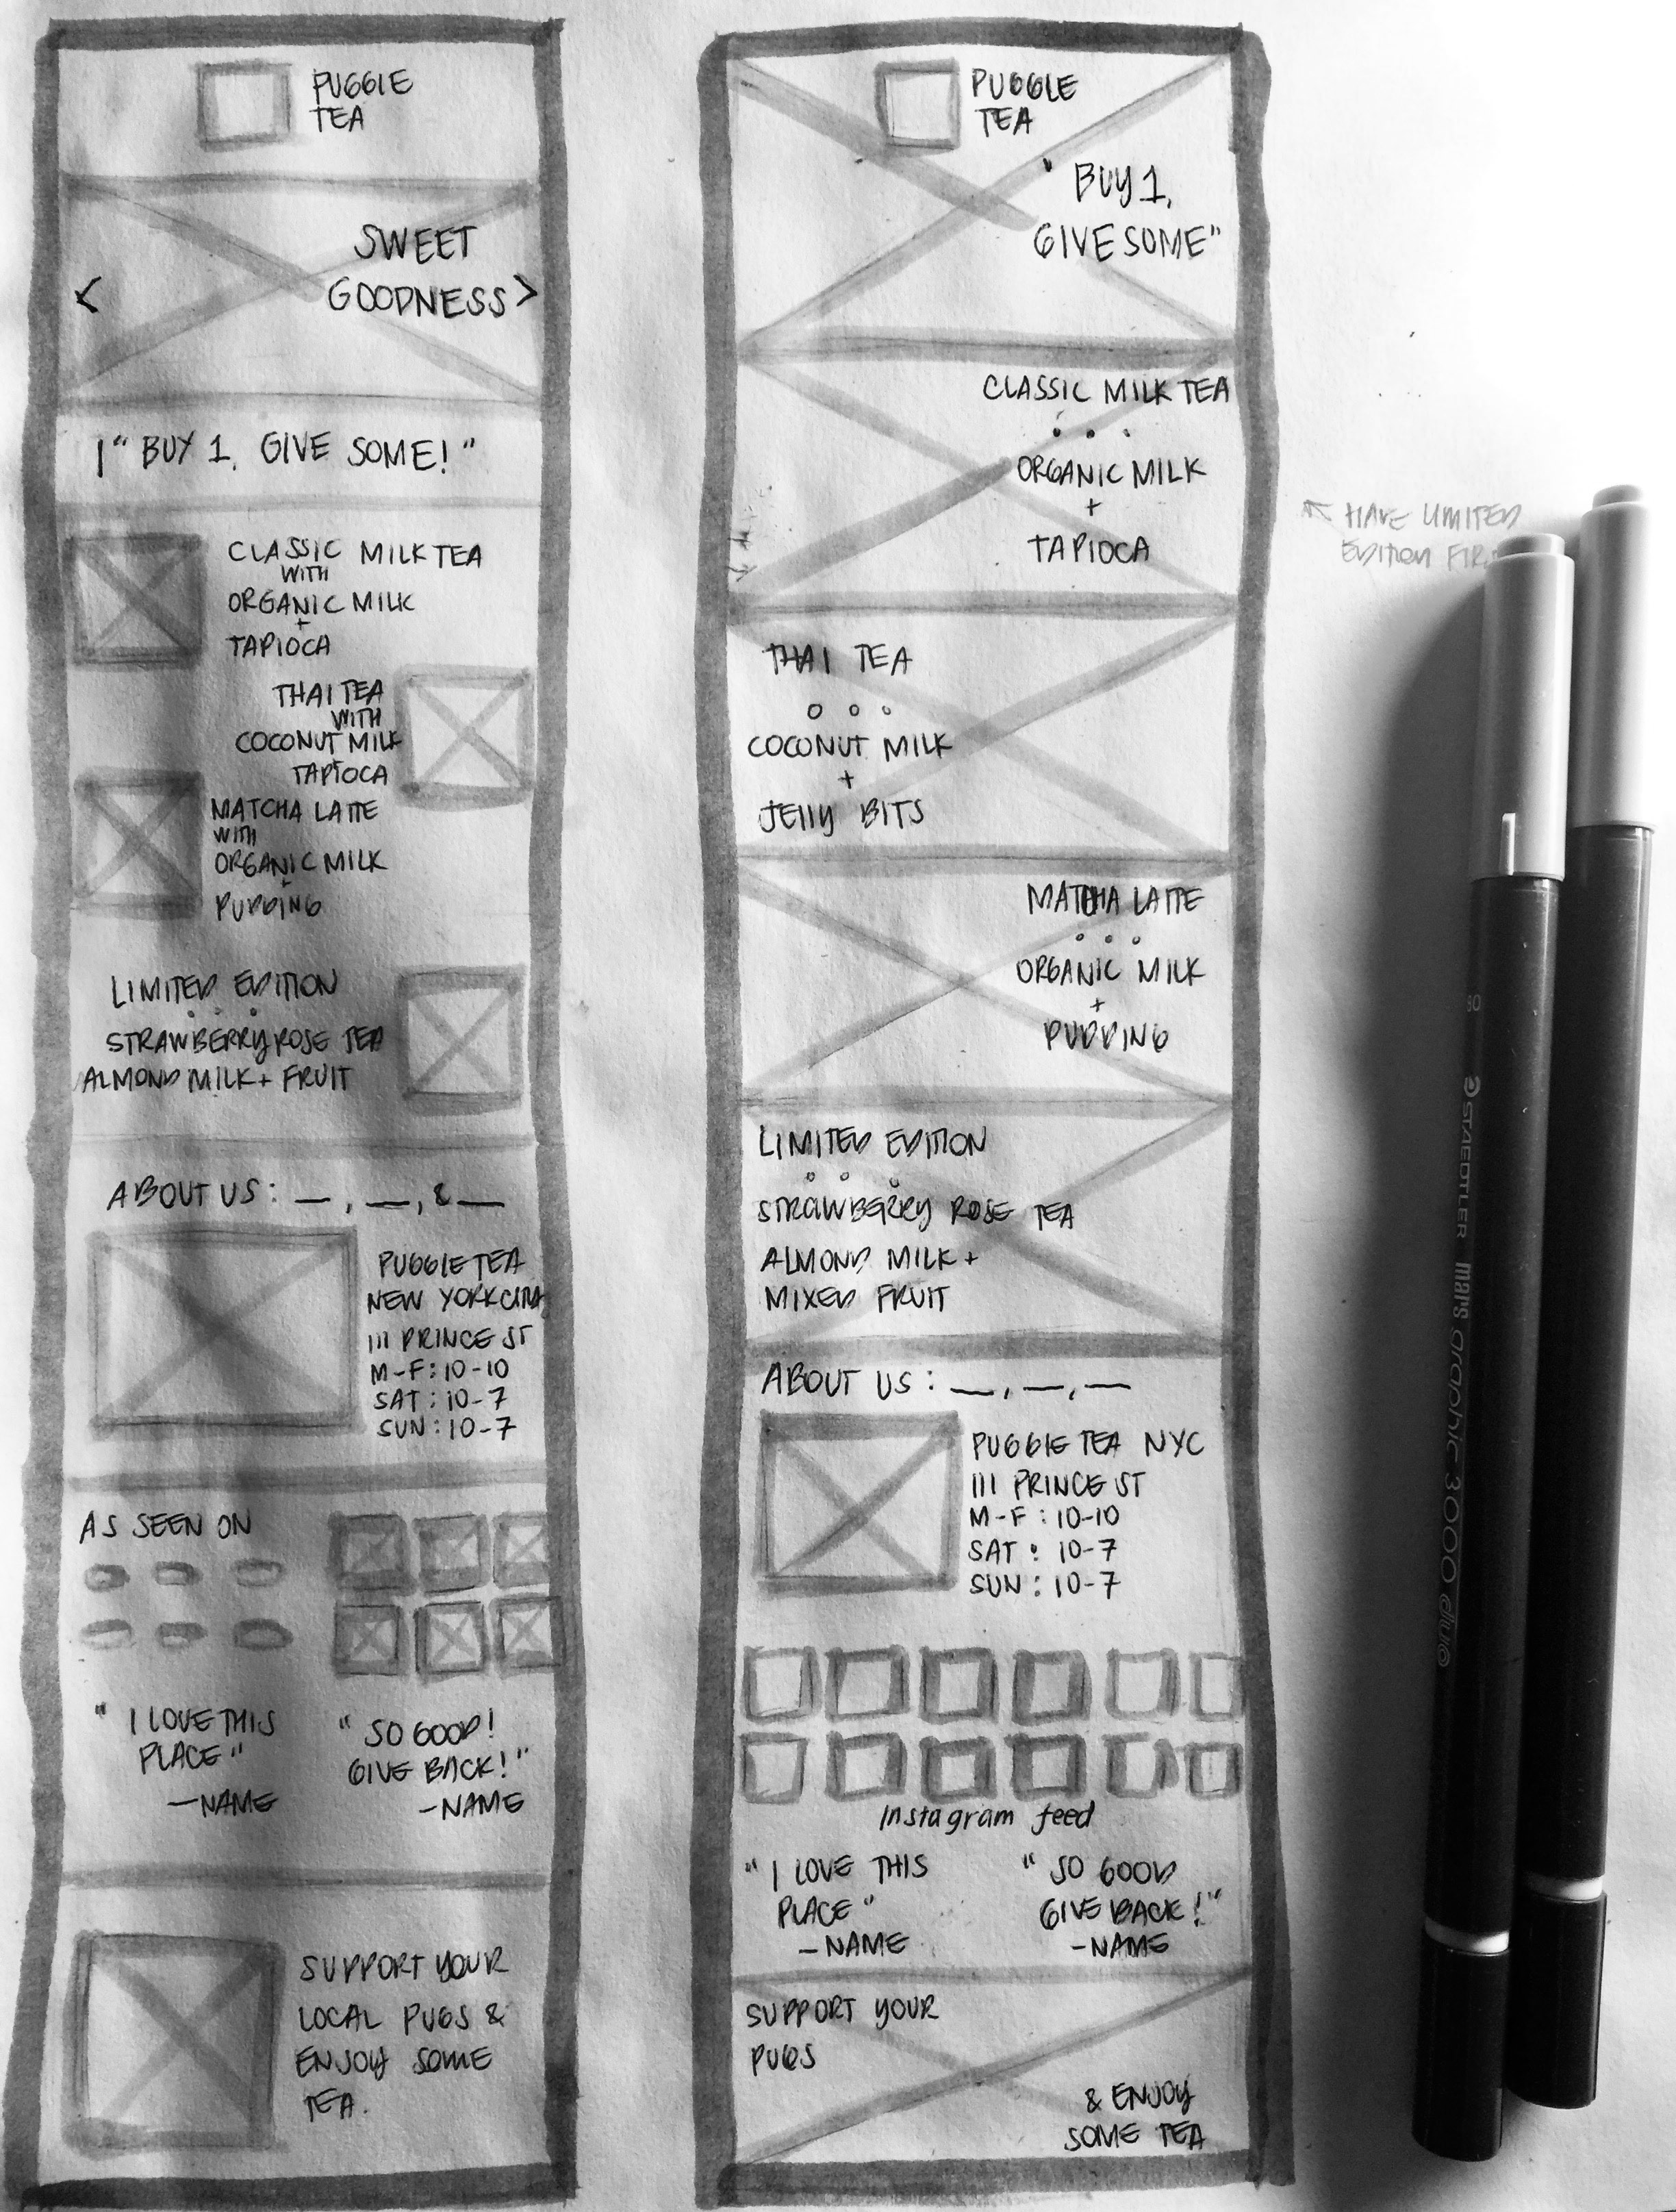 PUGGLE
TEA
SWEET
< GOODNESS >
"BUY 1, GIVE SOME!"
CLASSIC MILK TEA
WITH
ORGANIC MILK
+
TAPIOCA
THAI TEA
WITH
COCONUT MILK
+
TAPIOCA
MATCHA LATTE
WITH
ORGANIC MILK
+
PUDDING
LIMITED EDITION
...
STRAWBERRY ROSE TEA
ALMOND MILK + FRUIT
ABOUT US: _, _, & _
PUGGLE TEA
NEW YORK CITY
111 PRINCE ST
M-F: 10-10
SAT: 10-7
SUN: 10-7
AS SEEN ON
"I LOVE THIS
PLACE"
-NAME
"SO GOOD!
GIVE BACK!"
-NAME
SUPPORT YOUR
LOCAL PUGS &
ENJOY SOME
TEA.
PUGGLE
TEA
"BUY 1,
GIVE SOME"
CLASSIC MILK TEA
...
ORGANIC MILK
+
TAPIOCA
THAI TEA
...
COCONUT MILK
+
JELLY BITS
MATCHA LATTE
...
ORGANIC MILK
+
PUDDING
LIMITED EDITION
...
STRAWBERRY ROSE TEA
ALMOND MILK +
MIXED FRUIT
ABOUT US: _, _, _
PUGGLE TEA NYC
111 PRINCE ST
M-F: 10-10
SAT: 10-7
SUN: 10-7
Instagram feed
"I LOVE THIS
PLACE"
-NAME
"SO GOOD
GIVE BACK!"
-NAME
SUPPORT YOUR
PUGS
& ENJOY
SOME TEA
HAVE LIMITED
EDITION
STAEDTLER mars graphic 3000 duo